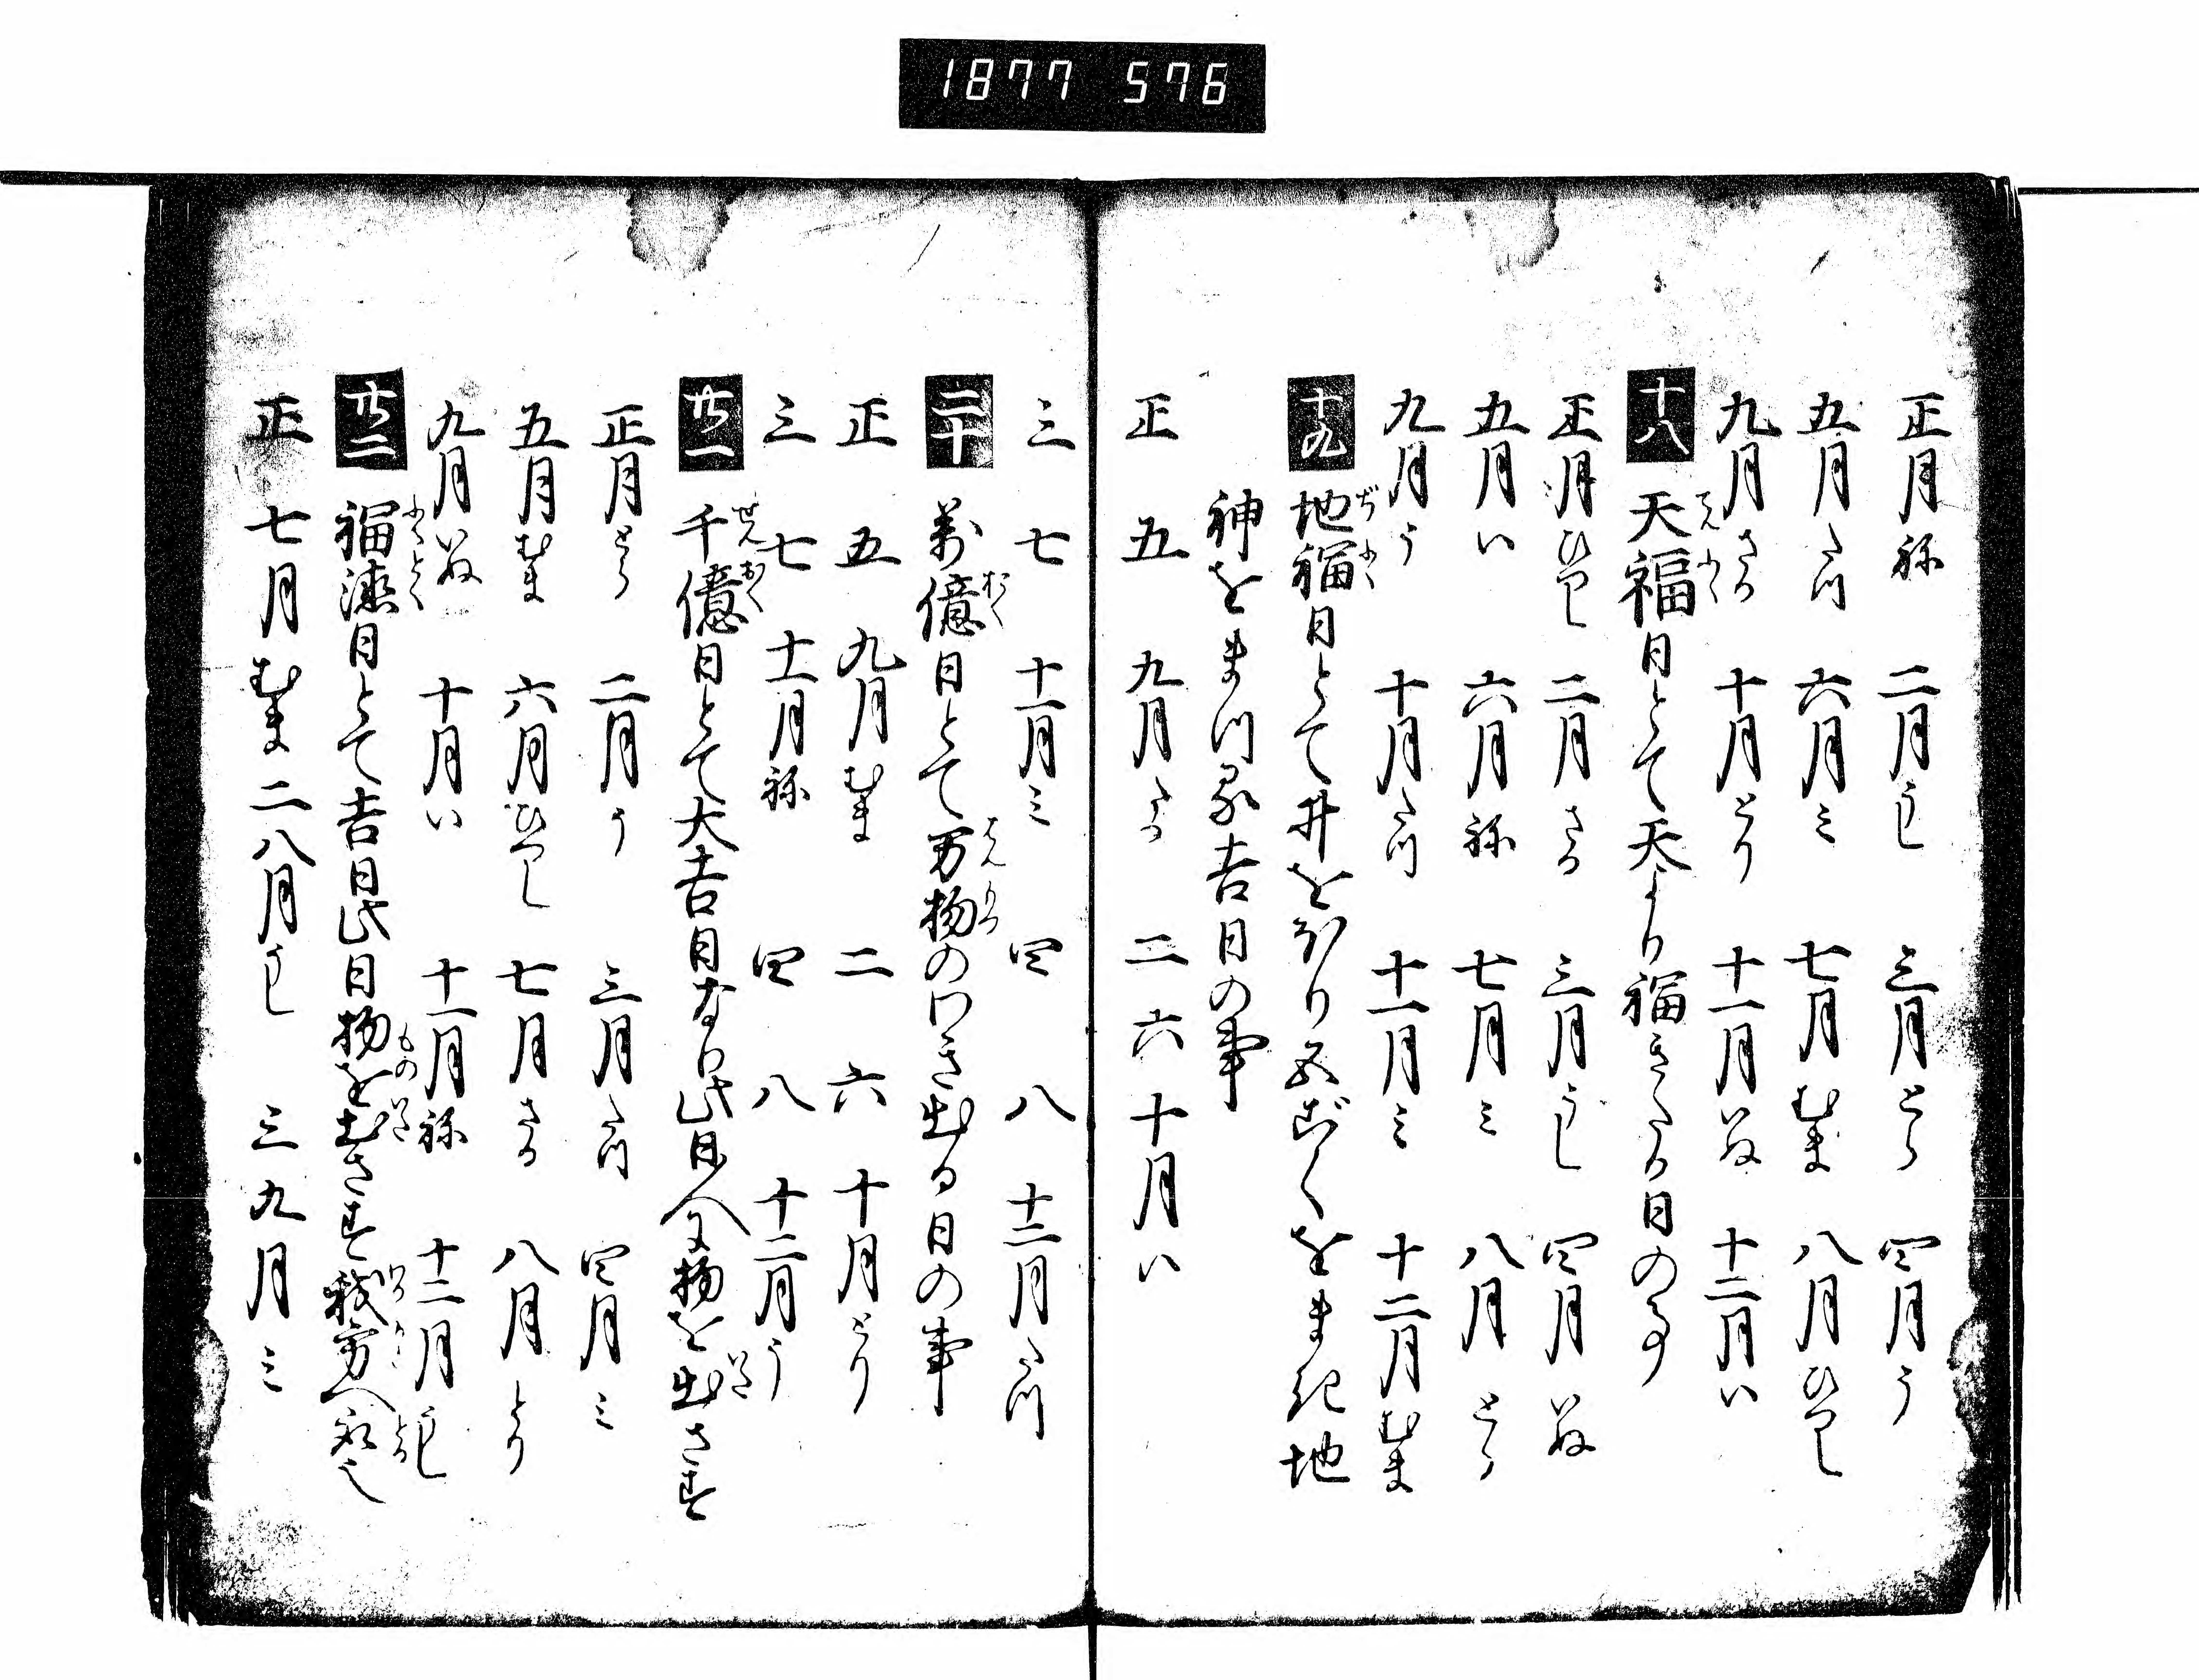 1877 576
正月ね 二月うし 三月とら 四月う
五月たつ 六月ミ 七月むま 八月ひつし
九月さる 十月とり 十一月いぬ 十二月い
十八 天福日とて天より福きたる日の事
てん ふく
正月ひつし 二月さる 三月うし 四月いぬ
五月い 六月ね 七月ミ 八月とら
九月う 十月たつ 十一月ミ 十二月むま
十九 地福日とて井をほり五こくをまき地
ぢ ふく
神をまつる吉日の事
正 五 九月たつ 二 六 十月い
三 七 十一月ミ 四 八 十二月たつ
二十 万億日とて万物のわき出る日の事
おく はんもつ
正 五 九月むま 二 六 十月とり
三 七 十一月ね 四 八 十二月う
廿一 千億日とて大吉日なり此日人に物を出さす
せん おく いだ
正月とら 二月う 三月たつ 四月ミ
五月むま 六月ひつし 七月さる 八月とり
九月いぬ 十月い 十一月ね 十二月うし
廿二 福徳日とて吉日此日物を出さす我方へ取也
ふくとく もの いだ わかかた とる
正 七月むま 二 八月うし 三 九月ミ